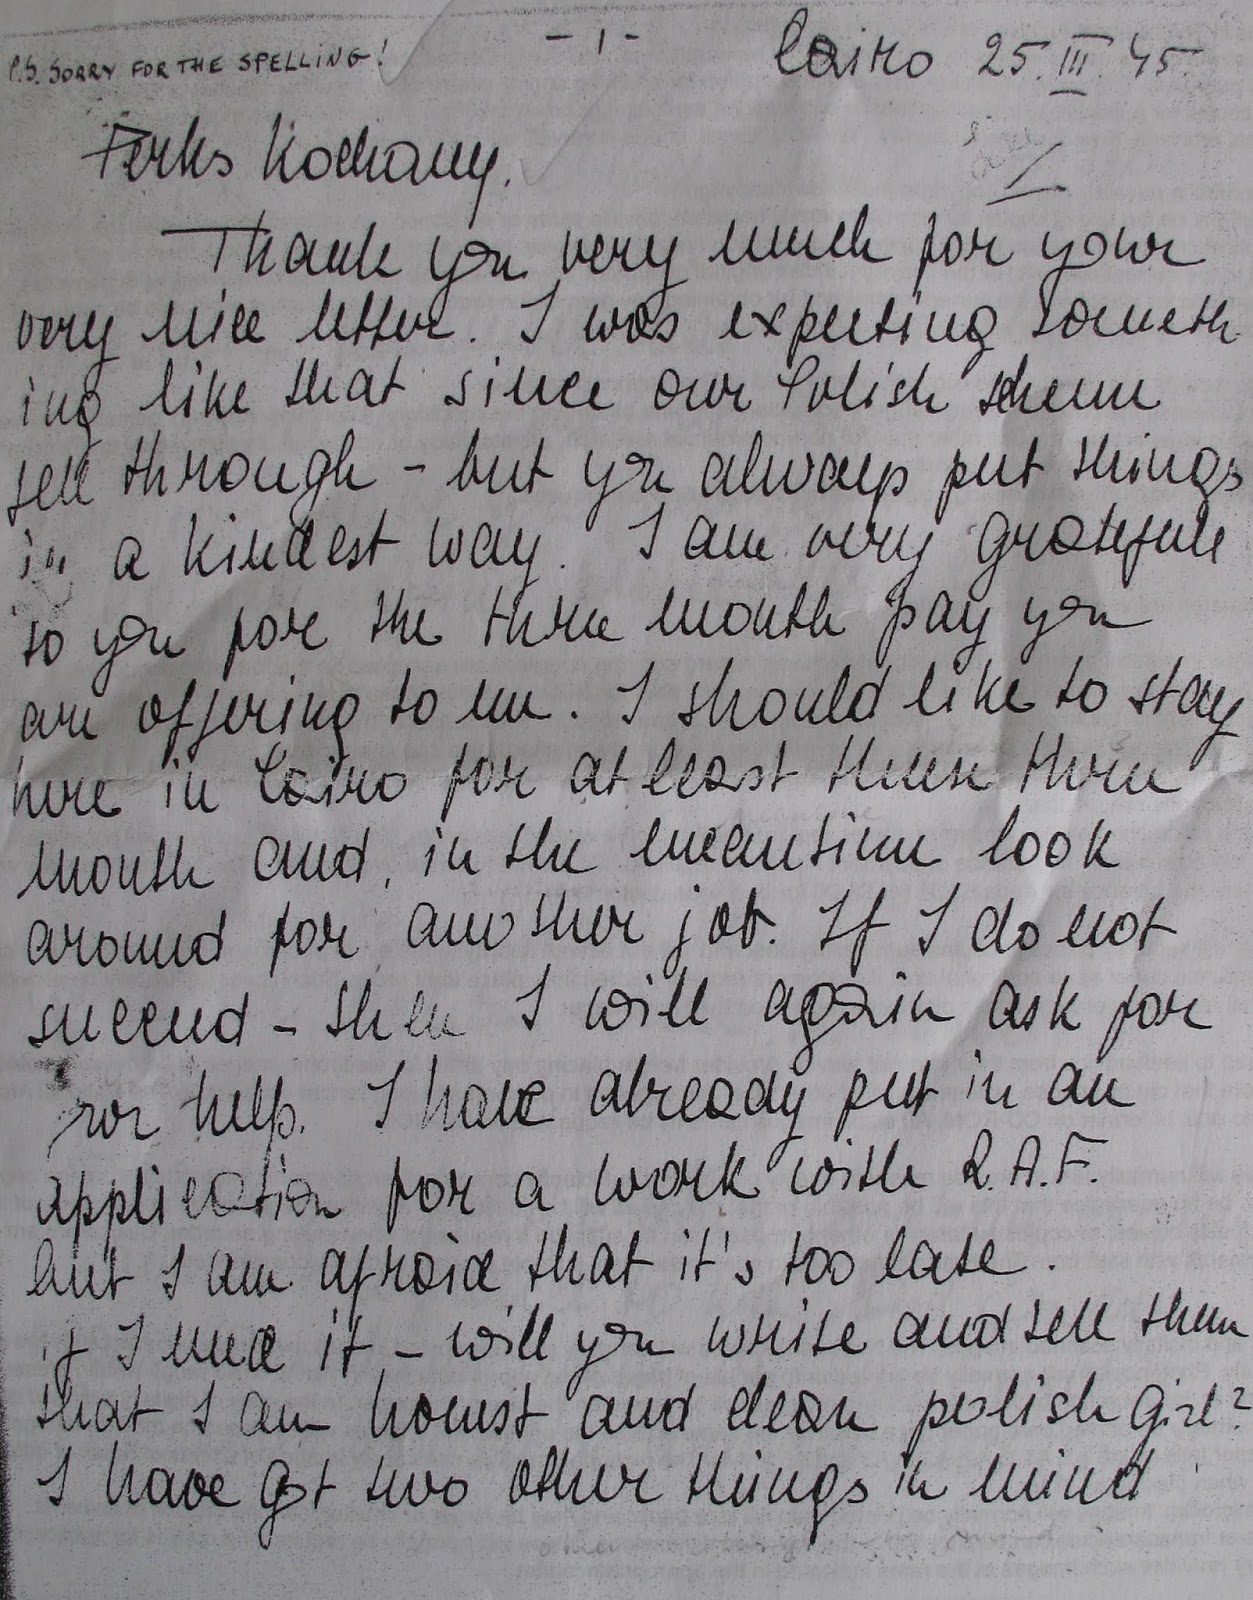 P.S. SORRY FOR THE SPELLING!
- 1 -
Cairo 25.III.45.
Perks Kochany.
Thank you very much for your
very nice letter. I was expecting someth
ing like that since our Polish scheme
fell through - but you always put things
in a kindest way. I am very grateful
to you for the three month pay you
are offering to me. I should like to stay
here in Cairo for at least these three
month and, in the meantime look
around for another job. If I do not
succeed - then I will again ask for
your help. I have already put in an
application for a work with R.A.F.
but I am afraid that it's too late.
if I need it - will you write and tell them
that I am honest and clean polish girl?
I have got two other things in mind